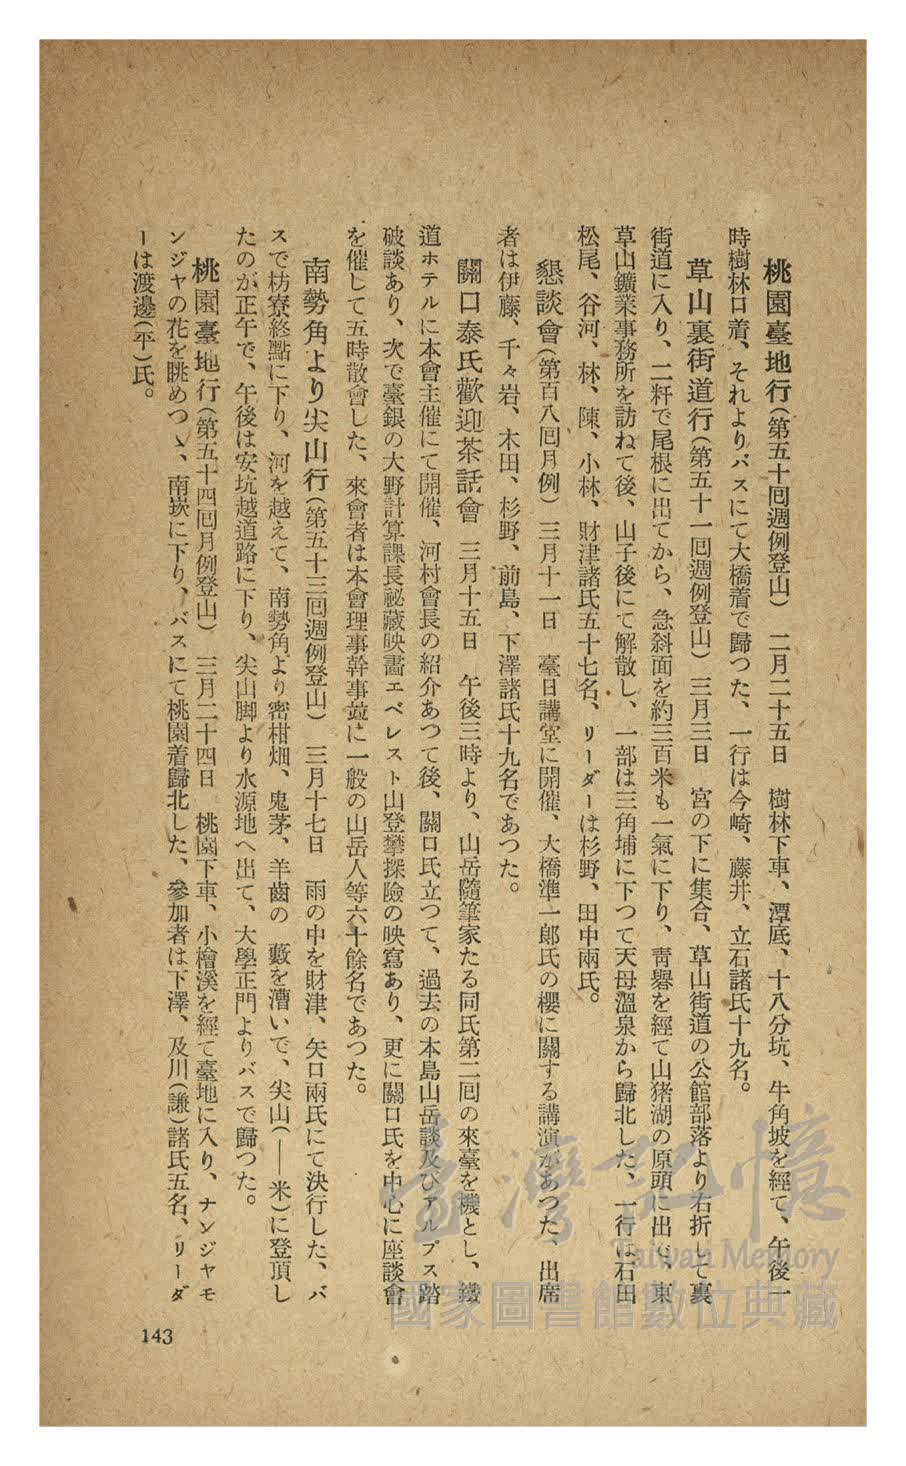 桃園臺地行(第五十囘週例登山) 二月二十五日 樹林下車、潭底、十八分坑、牛角坡を經て、午後一
時樹林口着、それよりバスにて大橋着で歸つた、一行は今崎、藤井、立石諸氏十九名。
草山裏街道行(第五十一囘週例登山) 三月三日 宮の下に集合、草山街道の公館部落より右折して裏
街道に入り、二粁で尾根に出てから、急斜面を約三百米も一氣に下り、靑礐を經て山猪湖の原頭に出で、東
草山鑛業事務所を訪ねて後、山子後にて解散し、一部は三角埔に下つて天母溫泉から歸北した、一行は石田
松尾、谷河、林、陳、小林、財津諸氏五十七名、リーダーは杉野、田中兩氏。
懇談會(第百八囘月例) 三月十一日 臺日講堂に開催、大橋準一郎氏の櫻に關する講演があつた、出席
者は伊藤、千々岩、木田、杉野、前島、下澤諸氏十九名であつた。
關口泰氏歡迎茶話會 三月十五日 午後三時より、山岳隨筆家たる同氏第二囘の來臺を機とし、鐵
道ホテルに本會主催にて開催、河村會長の紹介あつて後、關口氏立つて、過去の本島山岳談及びアルプス踏
破談あり、次で臺銀の大野計算課長祕藏映畫エベレスト山登攀探險の映寫あり、更に關口氏を中心に座談會
を催して五時散會した、來會者は本會理事幹事竝に一般の山岳人等六十餘名であつた。
南勢角より尖山行(第五十三囘週例登山) 三月十七日 雨の中を財津、矢口兩氏にて決行した、バ
スで枋寮終點に下り、河を越えて、南勢角より密柑畑、鬼茅、羊齒の 藪を漕いで、尖山(——米)に登頂し
たのが正午で、午後は安坑越道路に下り、尖山脚より水源地へ出て、大學正門よりバスで歸つた。
桃園臺地行(第五十四囘月例登山) 三月二十四日 桃園下車、小檜溪を經て臺地に入り、ナンジヤモ
ンジヤの花を眺めつゝ、南崁に下り、バスにて桃園着歸北した、參加者は下澤、及川(謙)諸氏五名、リーダ
ーは渡邊(平)氏。
143
臺灣記憶
Taiwan Memory
國家圖書館數位典藏